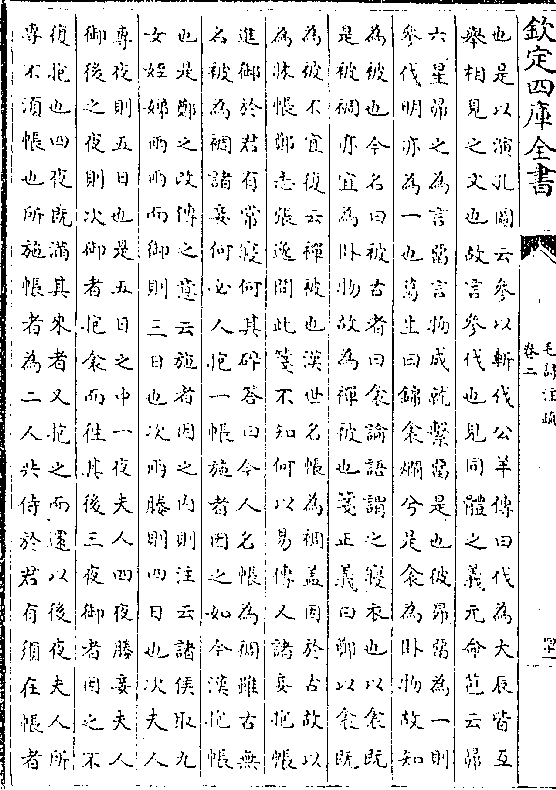 欽定四庫全書
毛詩注疏
卷二
也是以演孔圖云參以斬伐公羊傳曰伐為大辰皆互
舉相見之文也故言參伐也見同體之義元命苞云昴
六星昴之為言留言物成就繫留是也彼昴留為一則
參伐明亦為一也葛生曰錦衾爛兮是衾為卧物故知
為被也今名曰被古者曰衾論語謂之寢衣也以衾既
是被裯亦宜為卧物故為襌被也箋正義曰鄭以衾既
為被不宜復云襌被也漢世名帳為裯蓋因於古故以
為牀帳鄭志張逸問此箋不知何以易傳又諸妾抱帳
進御於君有常寢何其碎答曰今人名帳為裯雖古無
名被為裯諸妾何必人抱一帳施者因之如今漢抱帳
也是鄭之改傳之意云施者因之内則注云諸侯取九
女姪娣兩兩而御則三日也次兩媵則四日也次夫人
專夜則五日也是五日之中一夜夫人四夜媵妾夫人
御後之夜則次御者抱衾而往其後三夜御者因之不
復抱也四夜既滿其來者又抱之而還以後夜夫人所
專不須帳也所施帳者為二人共侍於君有須在帳者